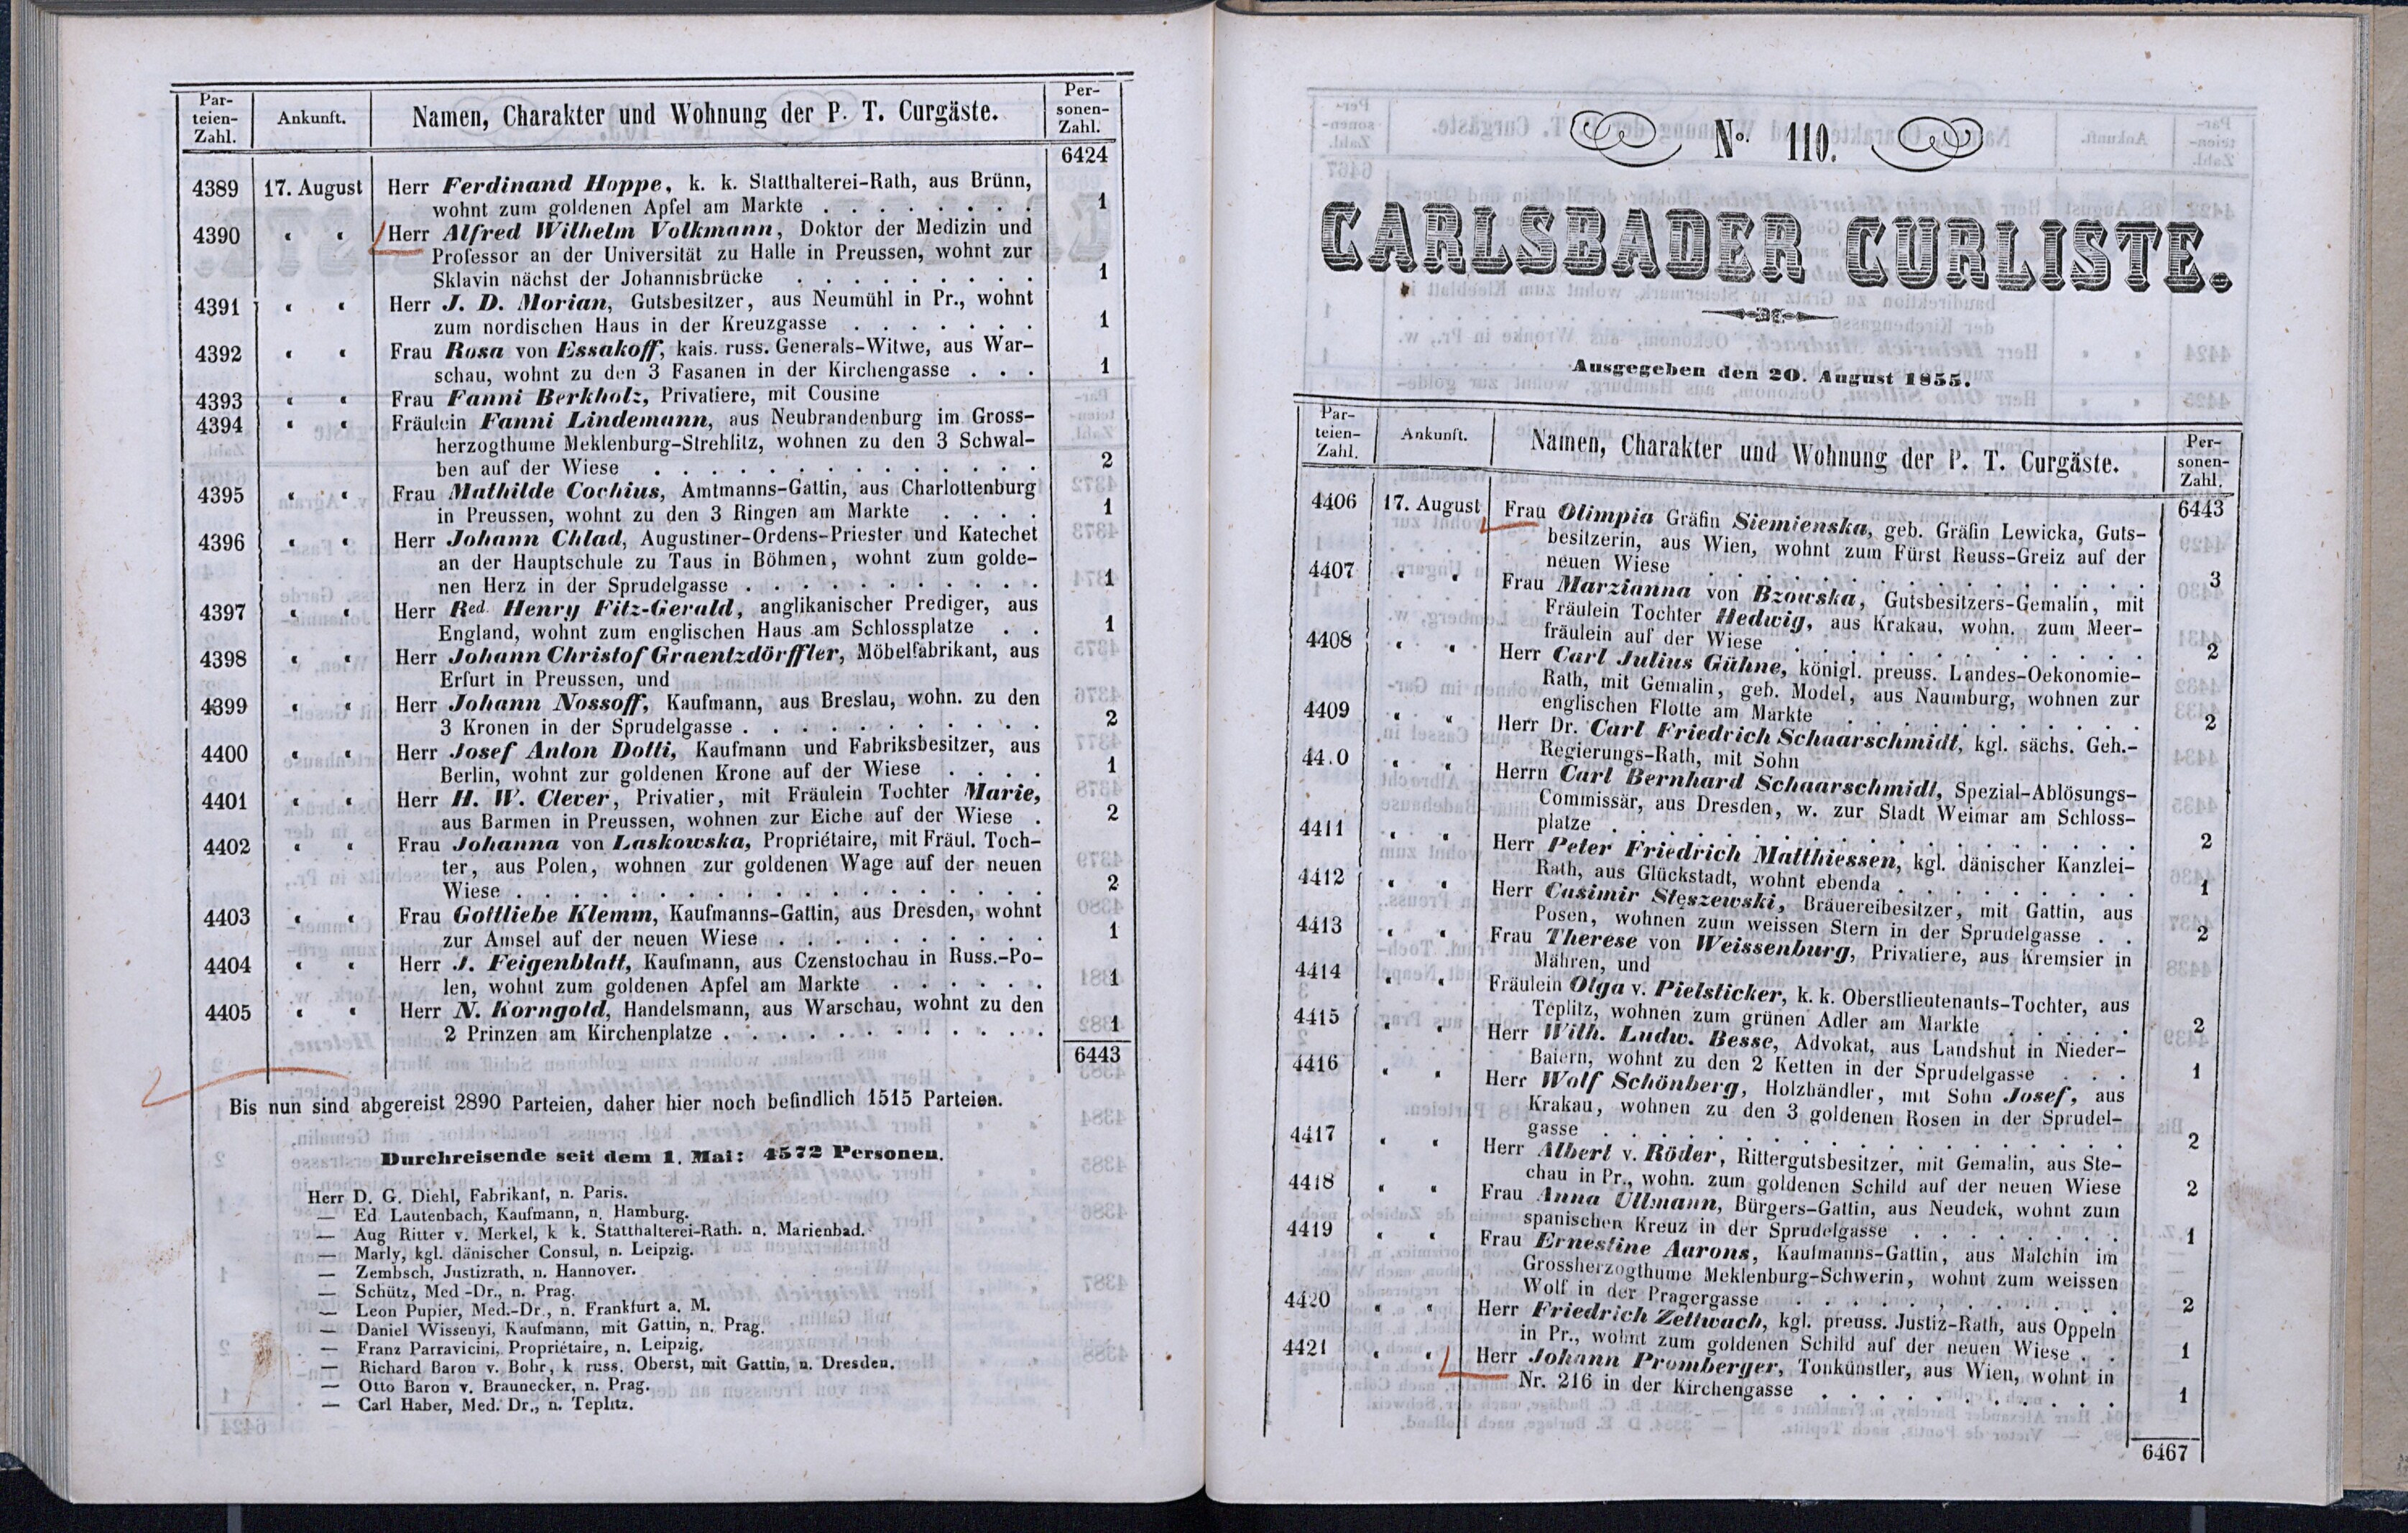 Par-
teien-
Zahl.
Ankunft.
Namen, Charakter und Wohnung der P. T. Curgäste.
Per-
sonen-
Zahl.
6424
4389 17. August Herr Ferdinand Hoppe, k. k. Statthalterei-Rath, aus Brünn,
wohnt zum goldenen Apfel am Markte . . . . . . . . 1
4390 " " Herr Alfred Wilhelm Volkmann, Doktor der Medizin und
Professor an der Universität zu Halle in Preussen, wohnt zur
Sklavin nächst der Johannisbrücke . . . . . . . . . 1
4391 " " Herr J. D. Morian, Gutsbesitzer, aus Neumühl in Pr., wohnt
zum nordischen Haus in der Kreuzgasse . . . . . . . 1
4392 " " Frau Rosa von Essakoff, kais. russ. Generals-Witwe, aus War-
schau, wohnt zu den 3 Fasanen in der Kirchengasse . . . 1
4393 " " Frau Fanni Berkholz, Privatiere, mit Cousine
4394 " " Fräulein Fanni Lindemann, aus Neubrandenburg im Gross-
herzogthume Meklenburg-Strehlitz, wohnen zu den 3 Schwal-
ben auf der Wiese . . . . . . . . . . . . . . 2
4395 " " Frau Mathilde Cochius, Amtmanns-Gattin, aus Charlottenburg
in Preussen, wohnt zu den 3 Ringen am Markte . . . . 1
4396 " " Herr Johann Chlad, Augustiner-Ordens-Priester und Katechet
an der Hauptschule zu Taus in Böhmen, wohnt zum golde-
nen Herz in der Sprudelgasse . . . . . . . . . . . 1
4397 " " Herr Red. Henry Fitz-Gerald, anglikanischer Prediger, aus
England, wohnt zum englischen Haus am Schlossplatze . . 1
4398 " " Herr Johann Christof Graentzdörffler, Möbelfabrikant, aus
Erfurt in Preussen, und
4399 " " Herr Johann Nossoff, Kaufmann, aus Breslau, wohn. zu den
3 Kronen in der Sprudelgasse . . . . . . . . . . . 2
4400 " " Herr Josef Anton Dotti, Kaufmann und Fabriksbesitzer, aus
Berlin, wohnt zur goldenen Krone auf der Wiese . . . . 1
4401 " " Herr H. W. Clever, Privatier, mit Fräulein Tochter Marie,
aus Barmen in Preussen, wohnen zur Eiche auf der Wiese . 2
4402 " " Frau Johanna von Laskowska, Propriétaire, mit Fräul. Toch-
ter, aus Polen, wohnen zur goldenen Wage auf der neuen
Wiese . . . . . . . . . . . . . . . . . . . 2
4403 " " Frau Gottliebe Klemm, Kaufmanns-Gattin, aus Dresden, wohnt
zur Amsel auf der neuen Wiese . . . . . . . . . . 1
4404 " " Herr J. Feigenblatt, Kaufmann, aus Czenstochau in Russ.-Po-
len, wohnt zum goldenen Apfel am Markte . . . . . . 1
4405 " " Herr N. Korngold, Handelsmann, aus Warschau, wohnt zu den
2 Prinzen am Kirchenplatze . . . . . . . . . . . . 1
6443
Bis nun sind abgereist 2890 Parteien, daher hier noch befindlich 1515 Parteien.
Durchreisende seit dem 1. Mai: 4572 Personen.
Herr D. G. Diehl, Fabrikant, n. Paris.
— Ed. Lautenbach, Kaufmann, n. Hamburg.
— Aug Ritter v. Merkel, k k. Statthalterei-Rath. n. Marienbad.
— Marly, kgl. dänischer Consul, n. Leipzig.
— Zembsch, Justizrath, n. Hannover.
— Schütz, Med-Dr., n. Prag.
— Leon Pupier, Med.-Dr., n. Frankfurt a. M.
— Daniel Wissenyi, Kaufmann, mit Gattin, n. Prag.
— Franz Parravicini, Propriétaire, n. Leipzig.
— Richard Baron v. Bohr, k russ. Oberst, mit Gattin, n. Dresden.
— Otto Baron v. Braunecker, n. Prag.
— Carl Haber, Med. Dr., n. Teplitz.
No. 110.
CARLSBADER CURLISTE.
Ausgegeben den 20. August 1855.
Par-
teien-
Zahl.
Ankunft.
Namen, Charakter und Wohnung der P. T. Curgäste.
Per-
sonen-
Zahl.
6443
4406 17. August Frau Olimpia Gräfin Siemienska, geb. Gräfin Lewicka, Guts-
besitzerin, aus Wien, wohnt zum Fürst Reuss-Greiz auf der
neuen Wiese . . . . . . . . . . . . . . . . 3
4407 " " Frau Marzianna von Bzowska, Gutsbesitzers-Gemalin, mit
Fräulein Tochter Hedwig, aus Krakau, wohn. zum Meer-
fräulein auf der Wiese . . . . . . . . . . . . . 2
4408 " " Herr Carl Julius Gühne, königl. preuss. Landes-Oekonomie-
Rath, mit Gemalin, geb. Model, aus Naumburg, wohnen zur
englischen Flotte am Markte . . . . . . . . . . . 2
4409 " " Herr Dr. Carl Friedrich Schaarschmidt, kgl. sächs. Geh.-
Regierungs-Rath, mit Sohn
44.0 " " Herrn Carl Bernhard Schaarschmidt, Spezial-Ablösungs-
Commissär, aus Dresden, w. zur Stadt Weimar am Schloss-
platze . . . . . . . . . . . . . . . . . . . 2
4411 " " Herr Peter Friedrich Matthiessen, kgl. dänischer Kanzlei-
Rath, aus Glückstadt, wohnt ebenda . . . . . . . . . 1
4412 " " Herr Casimir Stęszewski, Bräuereibesitzer, mit Gattin, aus
Posen, wohnen zum weissen Stern in der Sprudelgasse . . 2
4413 " " Frau Therese von Weissenburg, Privatiere, aus Kremsier in
Mähren, und
4414 " " Fräulein Olga v. Pielsticker, k. k. Oberstlieutenants-Tochter, aus
Teplitz, wohnen zum grünen Adler am Markte . . . . . 2
4415 " " Herr Wilh. Ludw. Besse, Advokat, aus Landshut in Nieder-
Baiern, wohnt zu den 2 Ketten in der Sprudelgasse . . . 1
4416 " " Herr Wolf Schönberg, Holzhändler, mit Sohn Josef, aus
Krakau, wohnen zu den 3 goldenen Rosen in der Sprudel-
gasse . . . . . . . . . . . . . . . . . . . 2
4417 " " Herr Albert v. Röder, Rittergutsbesitzer, mit Gemalin, aus Ste-
chau in Pr., wohn. zum goldenen Schild auf der neuen Wiese 2
4418 " " Frau Anna Ullmann, Bürgers-Gattin, aus Neudek, wohnt zum
spanischen Kreuz in der Sprudelgasse . . . . . . . . 1
4419 " " Frau Ernestine Aarons, Kaufmanns-Gattin, aus Malchin im
Grossherzogthume Meklenburg-Schwerin, wohnt zum weissen
Wolf in der Pragergasse . . . . . . . . . . . . 2
4420 " " Herr Friedrich Zettwach, kgl. preuss. Justiz-Rath, aus Oppeln
in Pr., wohnt zum goldenen Schild auf der neuen Wiese . . 1
4421 " " Herr Johann Promberger, Tonkünstler, aus Wien, wohnt in
Nr. 216 in der Kirchengasse . . . . . . . . . . . 1
6467